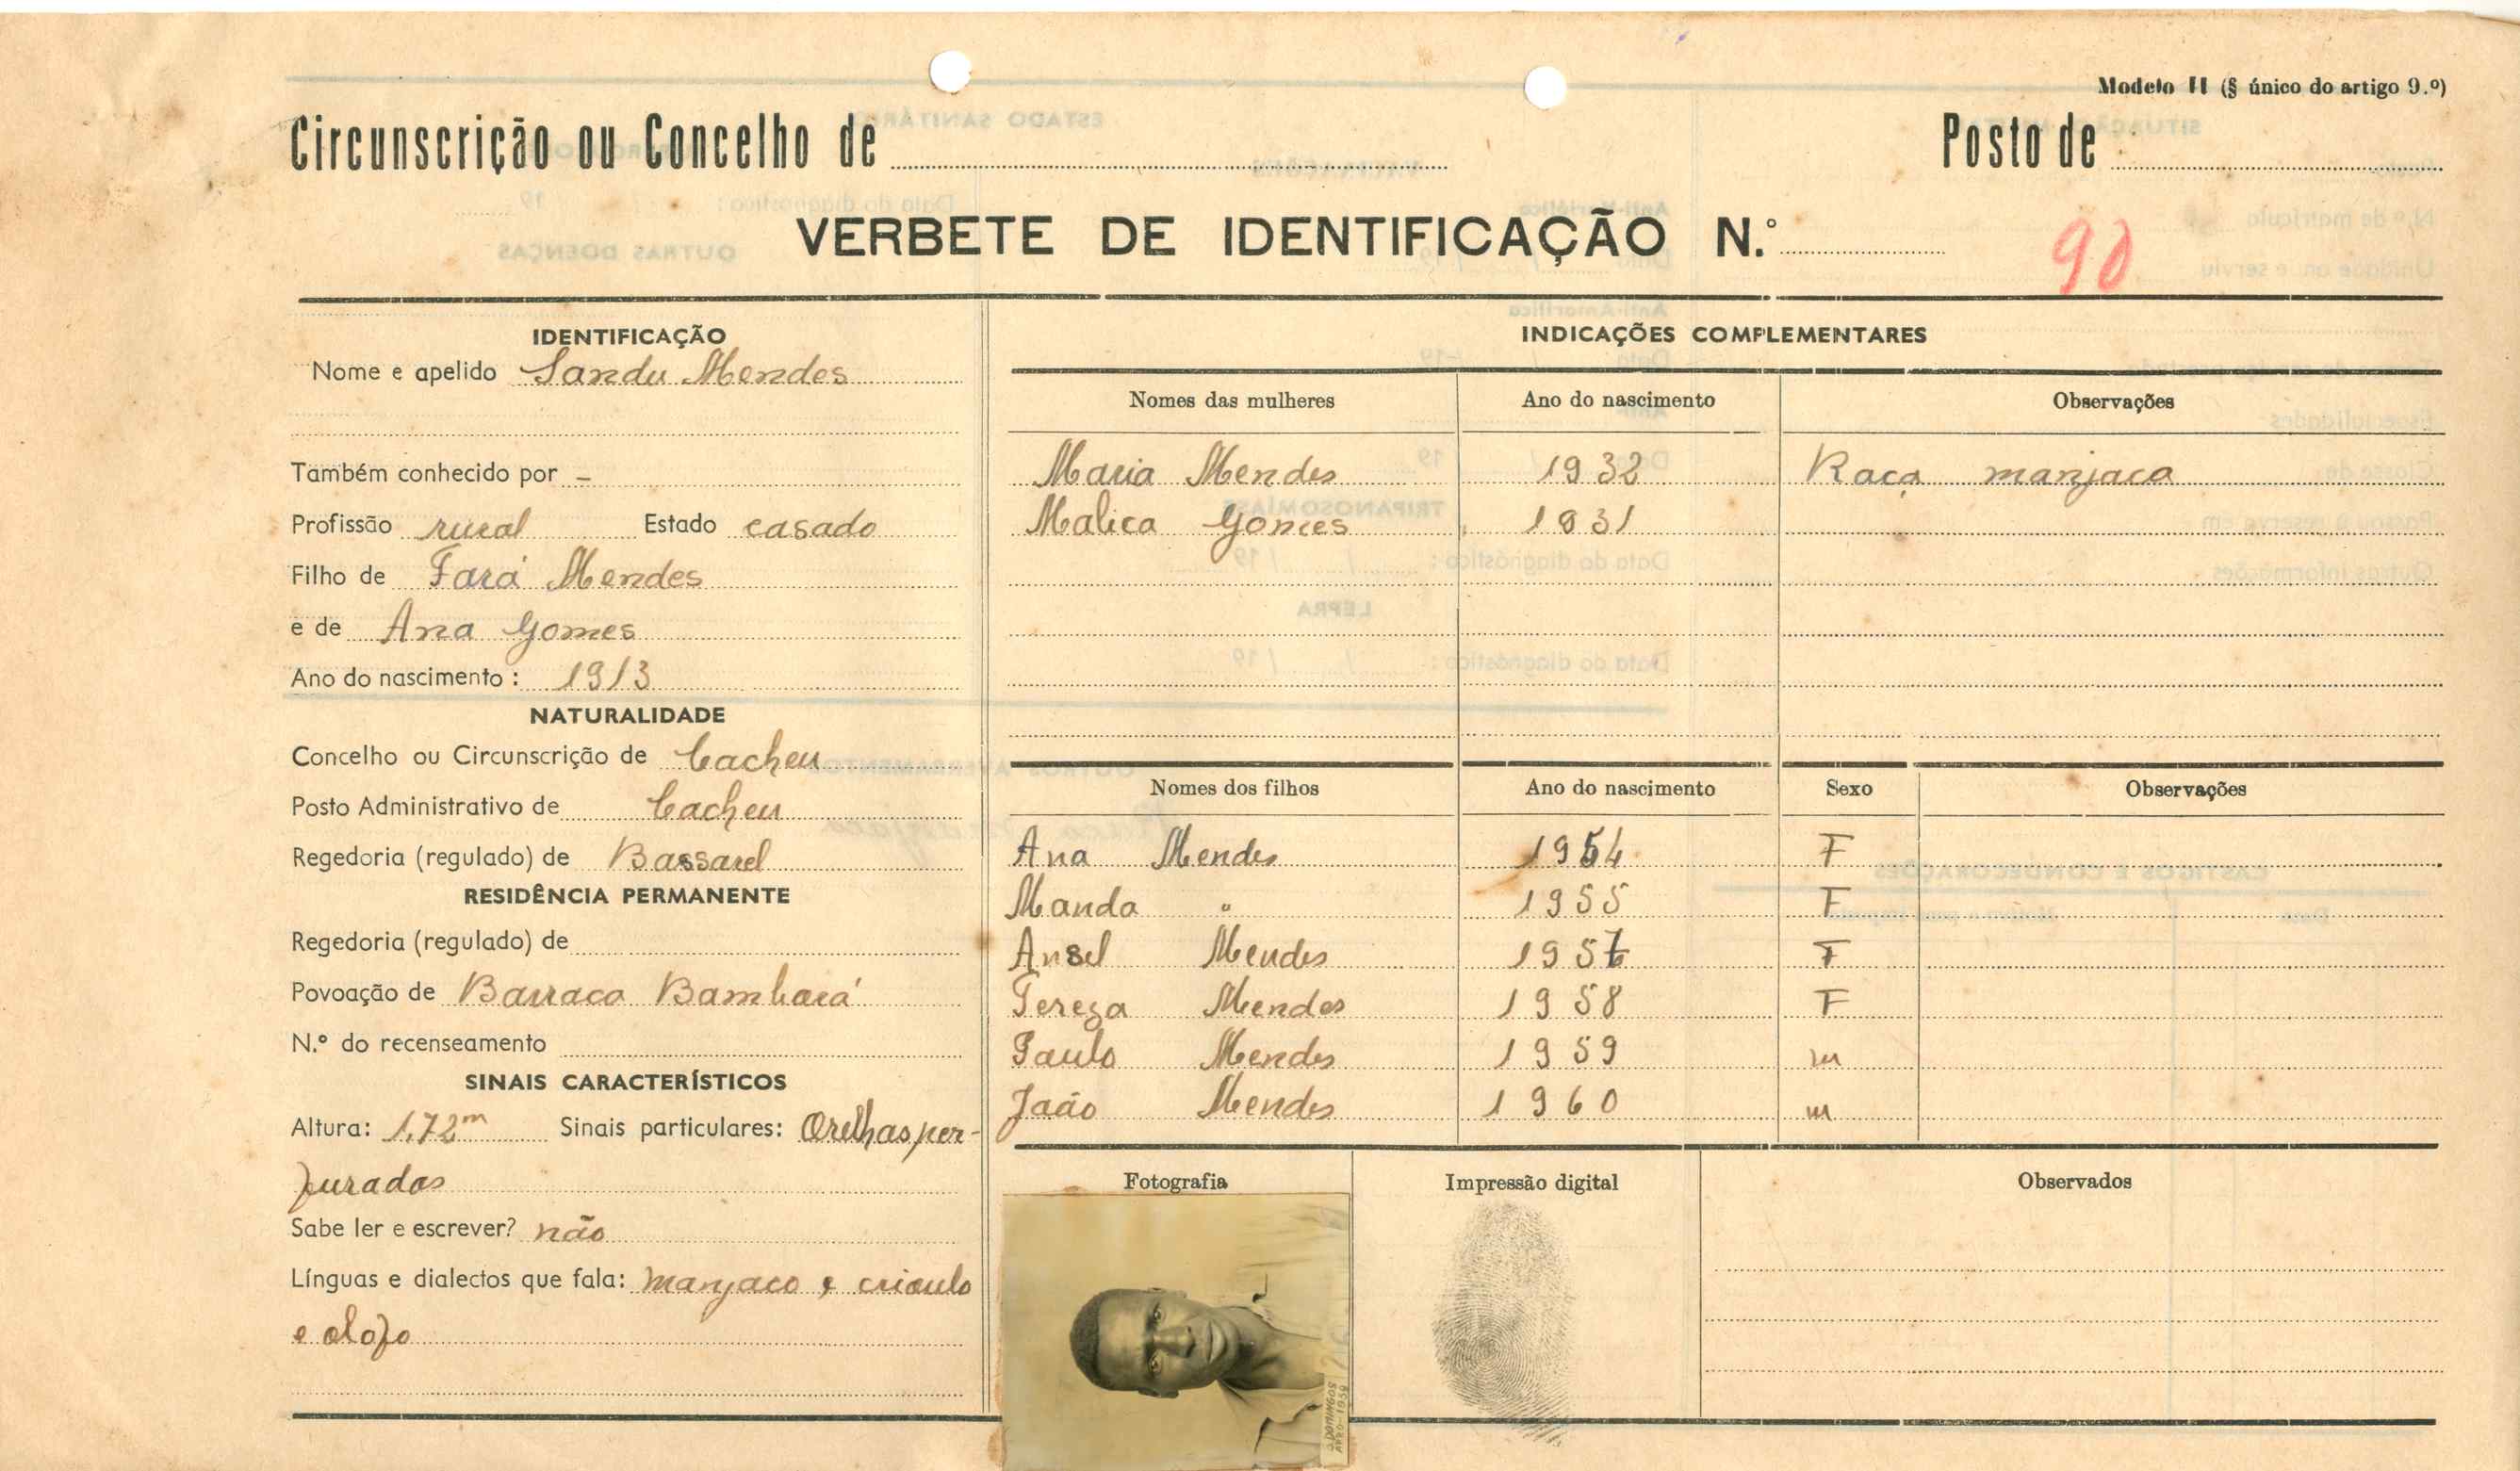 Modelo II (§ único do artigo 9.º)
Circunscrição ou Concelho de
Posto de
VERBETE DE IDENTIFICAÇÃO N.º
90
IDENTIFICAÇÃO
Nome e apelido Sandu Mendes
Também conhecido por -
Profissão rural Estado casado
Filho de Fará Mendes
e de Ana Gomes
Ano do nascimento: 1913
NATURALIDADE
Concelho ou Circunscrição de Cacheu
Posto Administrativo de Cacheu
Regedoria (regulado) de Bassarel
RESIDÊNCIA PERMANENTE
Regedoria (regulado) de
Povoação de Barraca Bambará
N.º do recenseamento
SINAIS CARACTERÍSTICOS
Altura: 1,72m Sinais particulares: Orelhas per-
furadas
Sabe ler e escrever? não
Línguas e dialectos que fala: manjaco e crioulo
e olofo
INDICAÇÕES COMPLEMENTARES
Nomes das mulheres Ano do nascimento Observações
Maria Mendes 1932 Raça manjaca
Malica Gomes 1931
Nomes dos filhos Ano do nascimento Sexo Observações
Ana Mendes 1954 F
Manda " 1955 F
Ansel Mendes 195 F
Tereza Mendes 1958 F
Paulo Mendes 1959 m
João Mendes 1960 m
Fotografia Impressão digital Observados
S.DOMINGOS